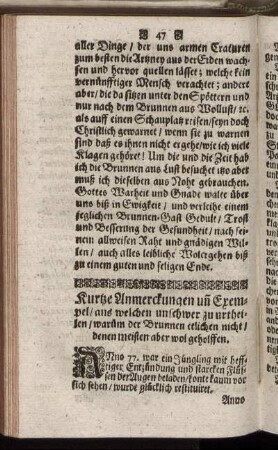 47
aller Dinge / der uns armen Craturen
zum besten die Artzney aus der Erden wach-
sen und hervor quellen lässet; welche kein
vernünfftiger Mensch verachtet; andere
aber / die da sitzen unter den Spöttern und
nur nach dem Brunnen aus Wollust / ꝛc.
als auff einen Schauplatz reisen / seyn doch
Christlich gewarnet / wenn sie zu warnen
sind daß es ihnen nicht ergehe / wie ich viel
Klagen gehöret! Um die und die Zeit hab
ich die Brunnen aus Lust besuchet itzo aber
muß ich dieselben aus Noht gebrauchen.
Gottes Warheit und Gnade walte über
uns biß in Ewigkeit / und verleihe einem
jeglichen Brunnen-Gast Gedult / Trost
und Besserung der Gesundheit / nach sei-
nem allweisen Raht und gnädigen Wil-
len / auch alles leibliche Wolergehen biß
zu einem guten und seligen Ende.
Kurtze Anmerckungen uñ Exem-
pel / aus welchen unschwer zu urthei-
len / warüm der Brunnen etlichen nicht /
denen meisten aber wol geholffen.
ANno 77. war ein Jüngling mit heff-
tiger Entzündung und starcken Flüs-
sen der Augen beladen / konte kaum vor
sich sehen / wurde glücklich restituiret.
Anno